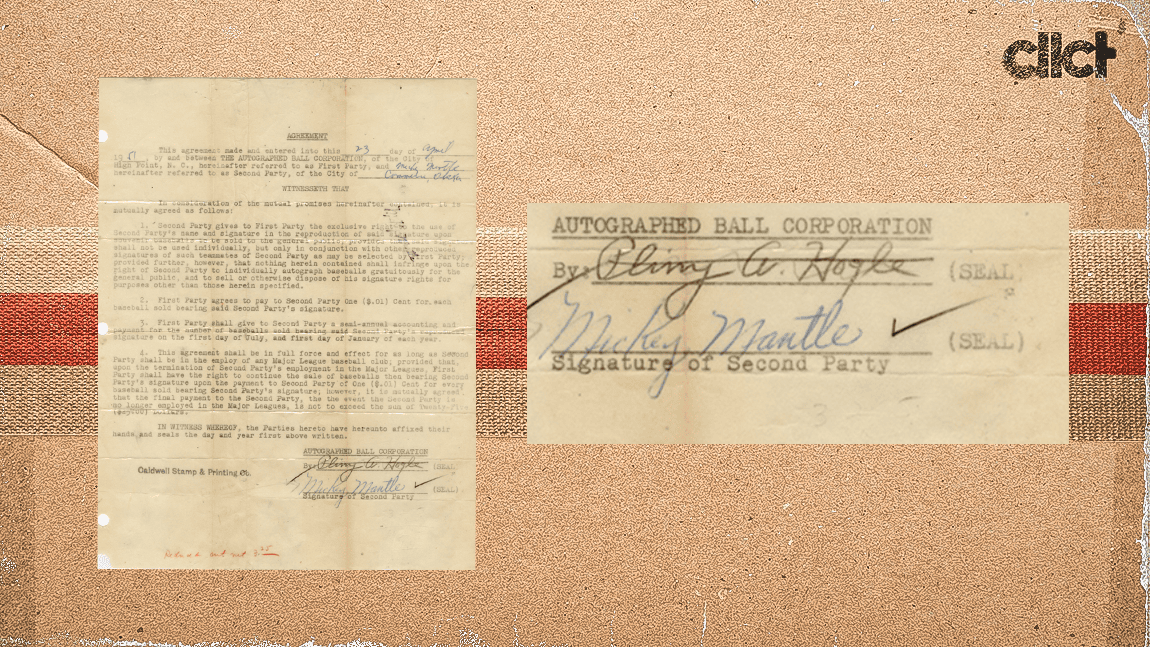 cllct
AGREEMENT
This agreement made and entered into this 23 day of April
by and between THE AUTOGRAPHED BALL CORPORATION, of the City of
High Point, N. C., hereinafter referred to as First Party, and
hereinafter referred to as Second Party, of the City of
WITNESSETH THAT
In consideration of the mutual promises hereinafter contained, it is
mutually agreed as follows:
1. Second Party gives to First Party the exclusive right to the use of
Second Party's name and signature in the reproduction of said signature upon
souvenir baseballs to be sold to the general public, provided
shall not be used individually, but only in conjunction with other
signatures of such teammates of Second Party as may be selected by First Party;
provided further, however, that nothing herein contained shall infringe upon the
right of Second Party to individually autograph baseballs gratuitously for the
general public, and to sell or otherwise dispose of his signature rights for
purposes other than those herein specified.
2. First Party agrees to pay to Second Party One ($.01) Cent for each
baseball sold bearing said Second Party's signature.
3. First Party shall give to Second Party a semi-annual accounting and
payment for the number of baseballs sold bearing said Second Party's
signature on the first day of July, and first day of January of each year.
4. This agreement shall be in full force and effect for as long as Second
Party shall be in the employ of any Major League baseball club; provided that,
upon the termination of Second Party's employment in the Major Leagues, First
Party shall have the right to continue the sale of baseballs then bearing Second
Party's signature upon the payment to Second Party of One ($.01) Cent for every
baseball sold bearing Second Party's signature; however, it is mutually agreed
that the final payment to the Second Party, the the event the Second Party is
no longer employed in the Major Leagues, is not to exceed the sum of Twenty-Five
Dollars.
IN WITNESS WHEREOF, the Parties hereto have hereunto affixed their
hands and seals the day and year first above written.
AUTOGRAPHED BALL CORPORATION
By: Pliny A. Hogle (SEAL)
Mickey Mantle (SEAL)
Signature of Second Party
Caldwell Stamp & Printing Co.
AUTOGRAPHED BALL CORPORATION
By: Pliny A. Hogle (SEAL)
Mickey Mantle (SEAL)
Signature of Second Party